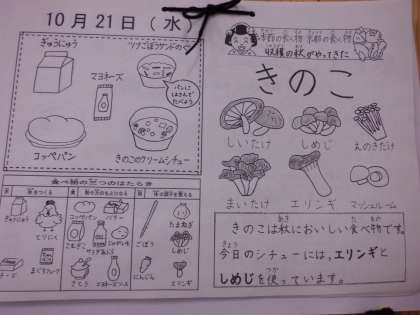 10月21日(水)
ぎゅうにゅう
ツナごぼうサンドのぐ
マヨネーズ
パンに
はさんで
たべよう
コッペパン
きのこのクリームシチュー
食べ物の三つのはたらき
ぎゅうにゅう
とりにく
チーズ
まぐろフレーク
コッペパン
バター
こむぎこ
じゃがいも
サラダあぶら
さとう
マヨネーズ
ごぼう
にんじん
たまねぎ
しめじ
エリンギ
収穫の秋がやってきた
きのこ
しいたけ
しめじ
えのきたけ
まいたけ
エリンギ
マッシュルーム
きのこは秋においしい食べ物です。
あき
た もの
きょう
今日のシチューには、エリンギと
しめじを使っています。
つか